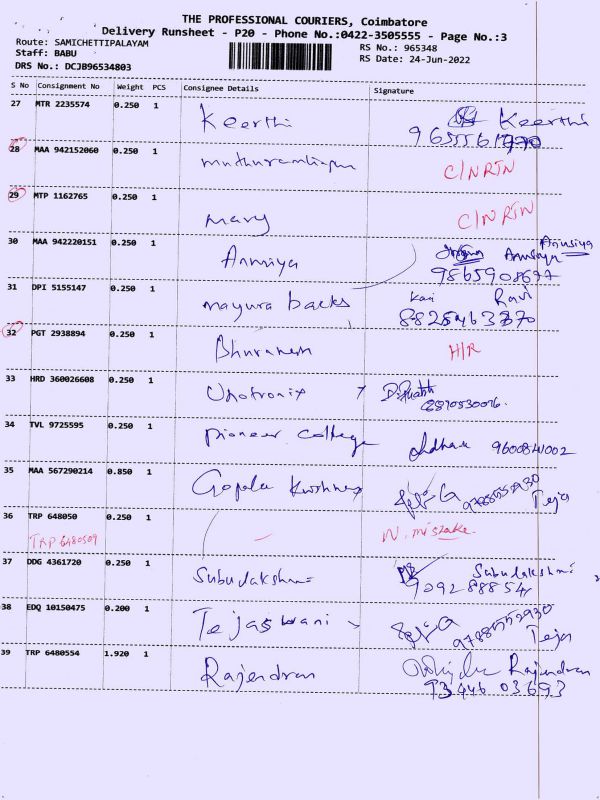 THE PROFESSIONAL COURIERS, Coimbatore
Delivery Runsheet - P20 - Phone No.:0422-3505555 - Page No.:3
Route: SAMICHETTIPALAYAM RS No.: 965348
Staff: BABU RS Date: 24-Jun-2022
DRS No.: DCJB96534803
S No Consignment No Weight PCS Consignee Details Signature
27 MTR 2235574 0.250 1 Keerthi Keerthi
28 MAA 942152060 0.250 1 C/N RTN
29 MTP 1162765 0.250 1 mary C/N RTN
30 MAA 942220151 0.250 1 Anusiya Anusiya Anusiya
31 DPI 5155147 0.250 1 mayura backs Ravi
32 PGT 2938894 0.250 1 H/R
33 HRD 360026608 0.250 1
34 TVL 9725595 0.250 1 pioneer college 9600841002
35 MAA 567290214 0.850 1 Gopala Krishnan 9788552930
Teja
36 TRP 648050 0.250 1 N. mistake
TRP 6480509
37 DDG 4361720 0.250 1 Subulakshmi Subulakshmi
38 EDQ 10150475 0.200 1 Tejaswani 9788552930
Teja
39 TRP 6480554 1.920 1 Rajendran Rajendran
93446 03693